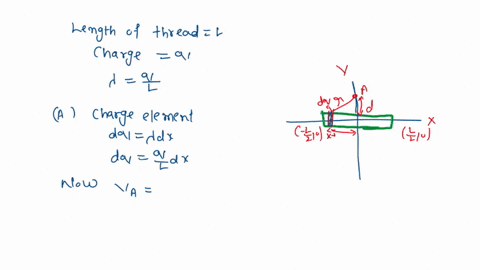 Length of thread = L
Charge = q
λ = q/L
(A) Charge element
dq = λdx
dq = q/L dx
Now V_A =
Y
A
dq r
d
X
(-L/2, 0) x (L/2, 0)